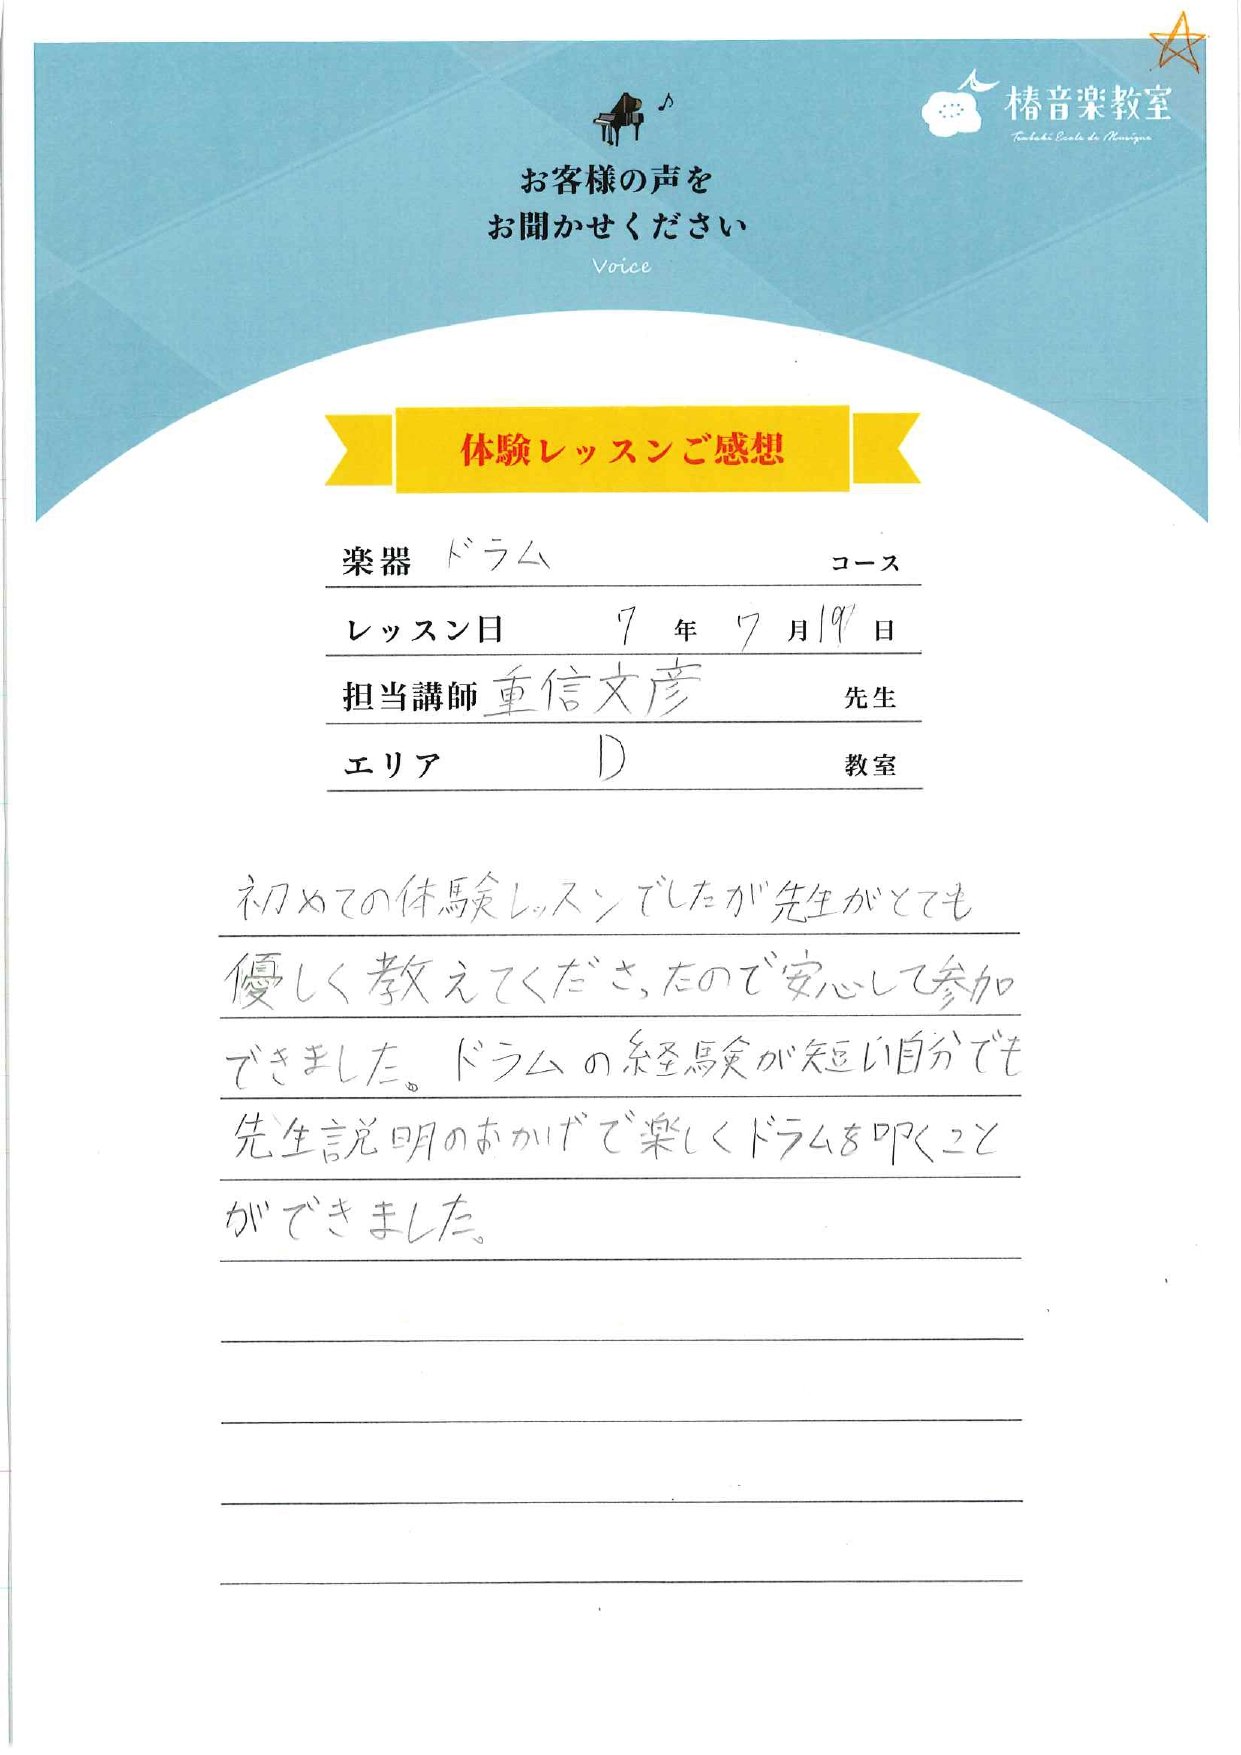 椿音楽教室
Tsubaki Ecole de Musique
お客様の声を
お聞かせください
Voice
体験レッスンご感想
楽器 ドラム コース
レッスン日 7 年 7 月 19 日
担当講師 重信文彦 先生
エリア D 教室
初めての体験レッスンでしたが先生がとても
優しく教えてくださったので安心して参加
できました。ドラムの経験が短い自分でも
先生説明のおかげで楽しくドラムを叩くこと
ができました。